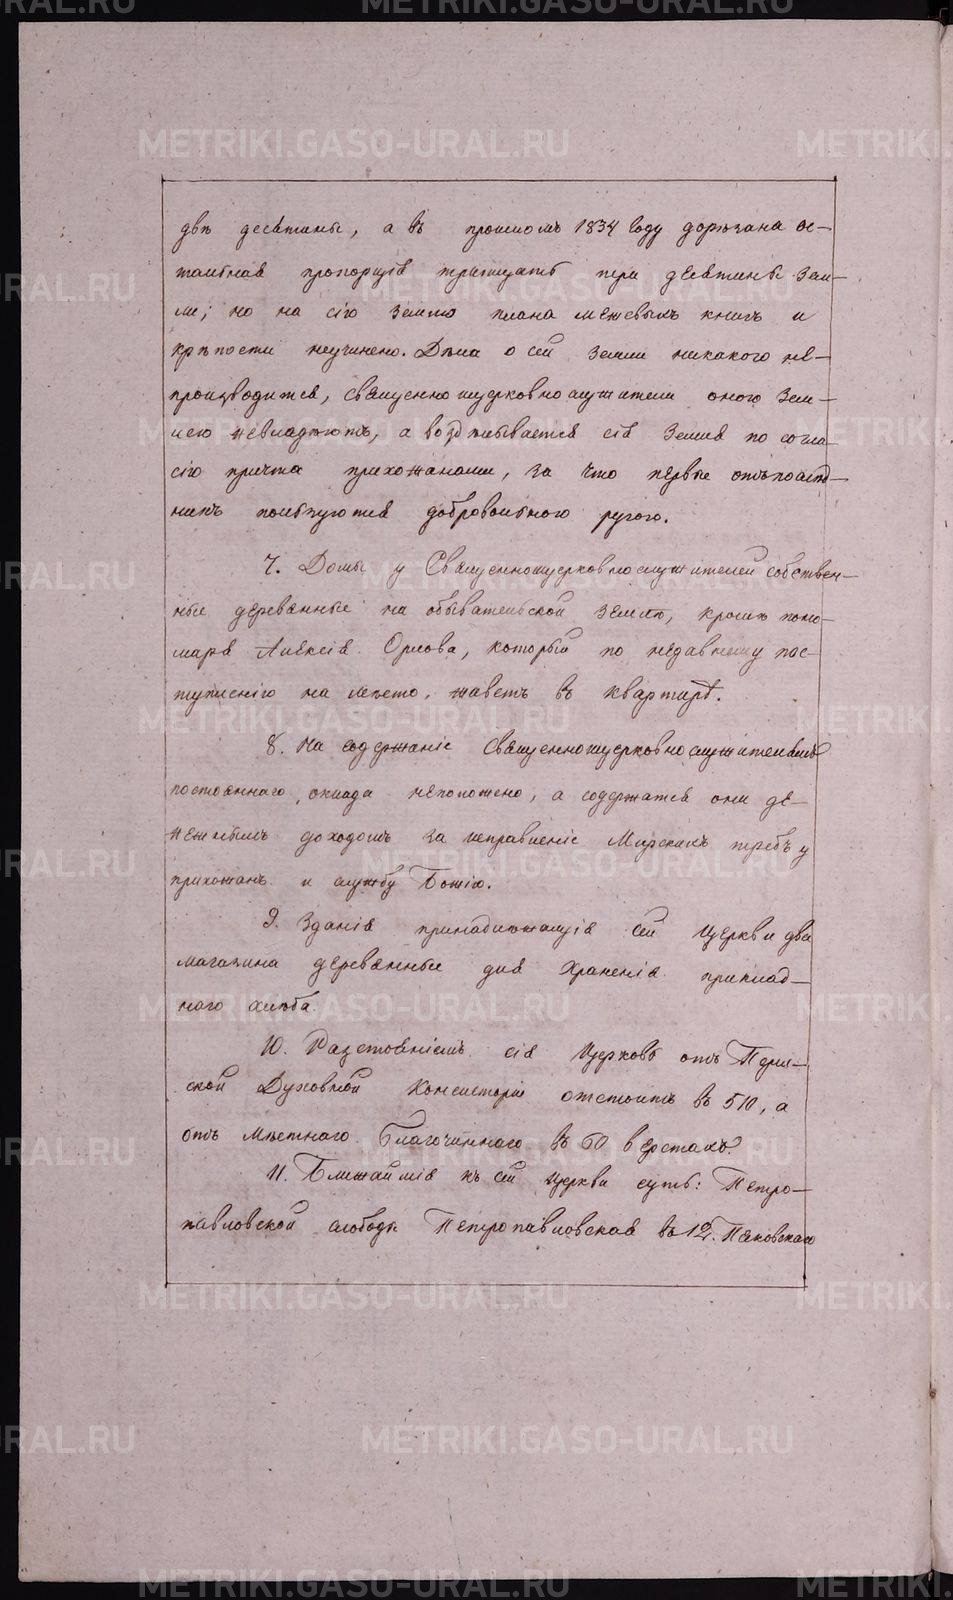 двѣ десѧтины, а въ прошломъ 1834 году дорѣзана ос-
тальная пропорція тритцать три десятины зем-
ли; но на сію землю плана межевыхъ книгъ и
крѣпости неучинено. Дѣла о сей земли никакого не-
производится, священноцерковнослужители оною зем-
лею невладѣютъ, а воздѣлывается сія земля по согла-
сію причта прихожанами, за что первые отъ послѣд-
нихъ пользуются добровольною ругою.
7. Домы у Священноцерковнослужителей собствен-
ные деревянные на обывательской землѣ, кромѣ поно-
маря Алексія Орлова, который по недавнему пос-
тупленію на мѣсто, живетъ въ квартирѣ.
8. На содержаніе священноцерковнослужителямъ
постояннаго оклада неположено, а содержатся они де-
нежнымъ доходомъ за исправленіе Мирскихъ требъ у
прихожанъ и службу Божію.
9. Зданія принадлѣжащія сей церкви два
магазина деревянные для храненія приклад-
наго хлѣба.
10. Разстояніемъ сія Церковь отъ Перм-
ской Духовной Консисторіи отстоитъ въ 510, а
отъ мѣстнаго Благочиннаго въ 60 верстахъ.
11. Ближайшія къ сей церкви суть: Петро-
павловской слободы Петропавловская въ 12.
METRIKI.GASO-URAL.RU